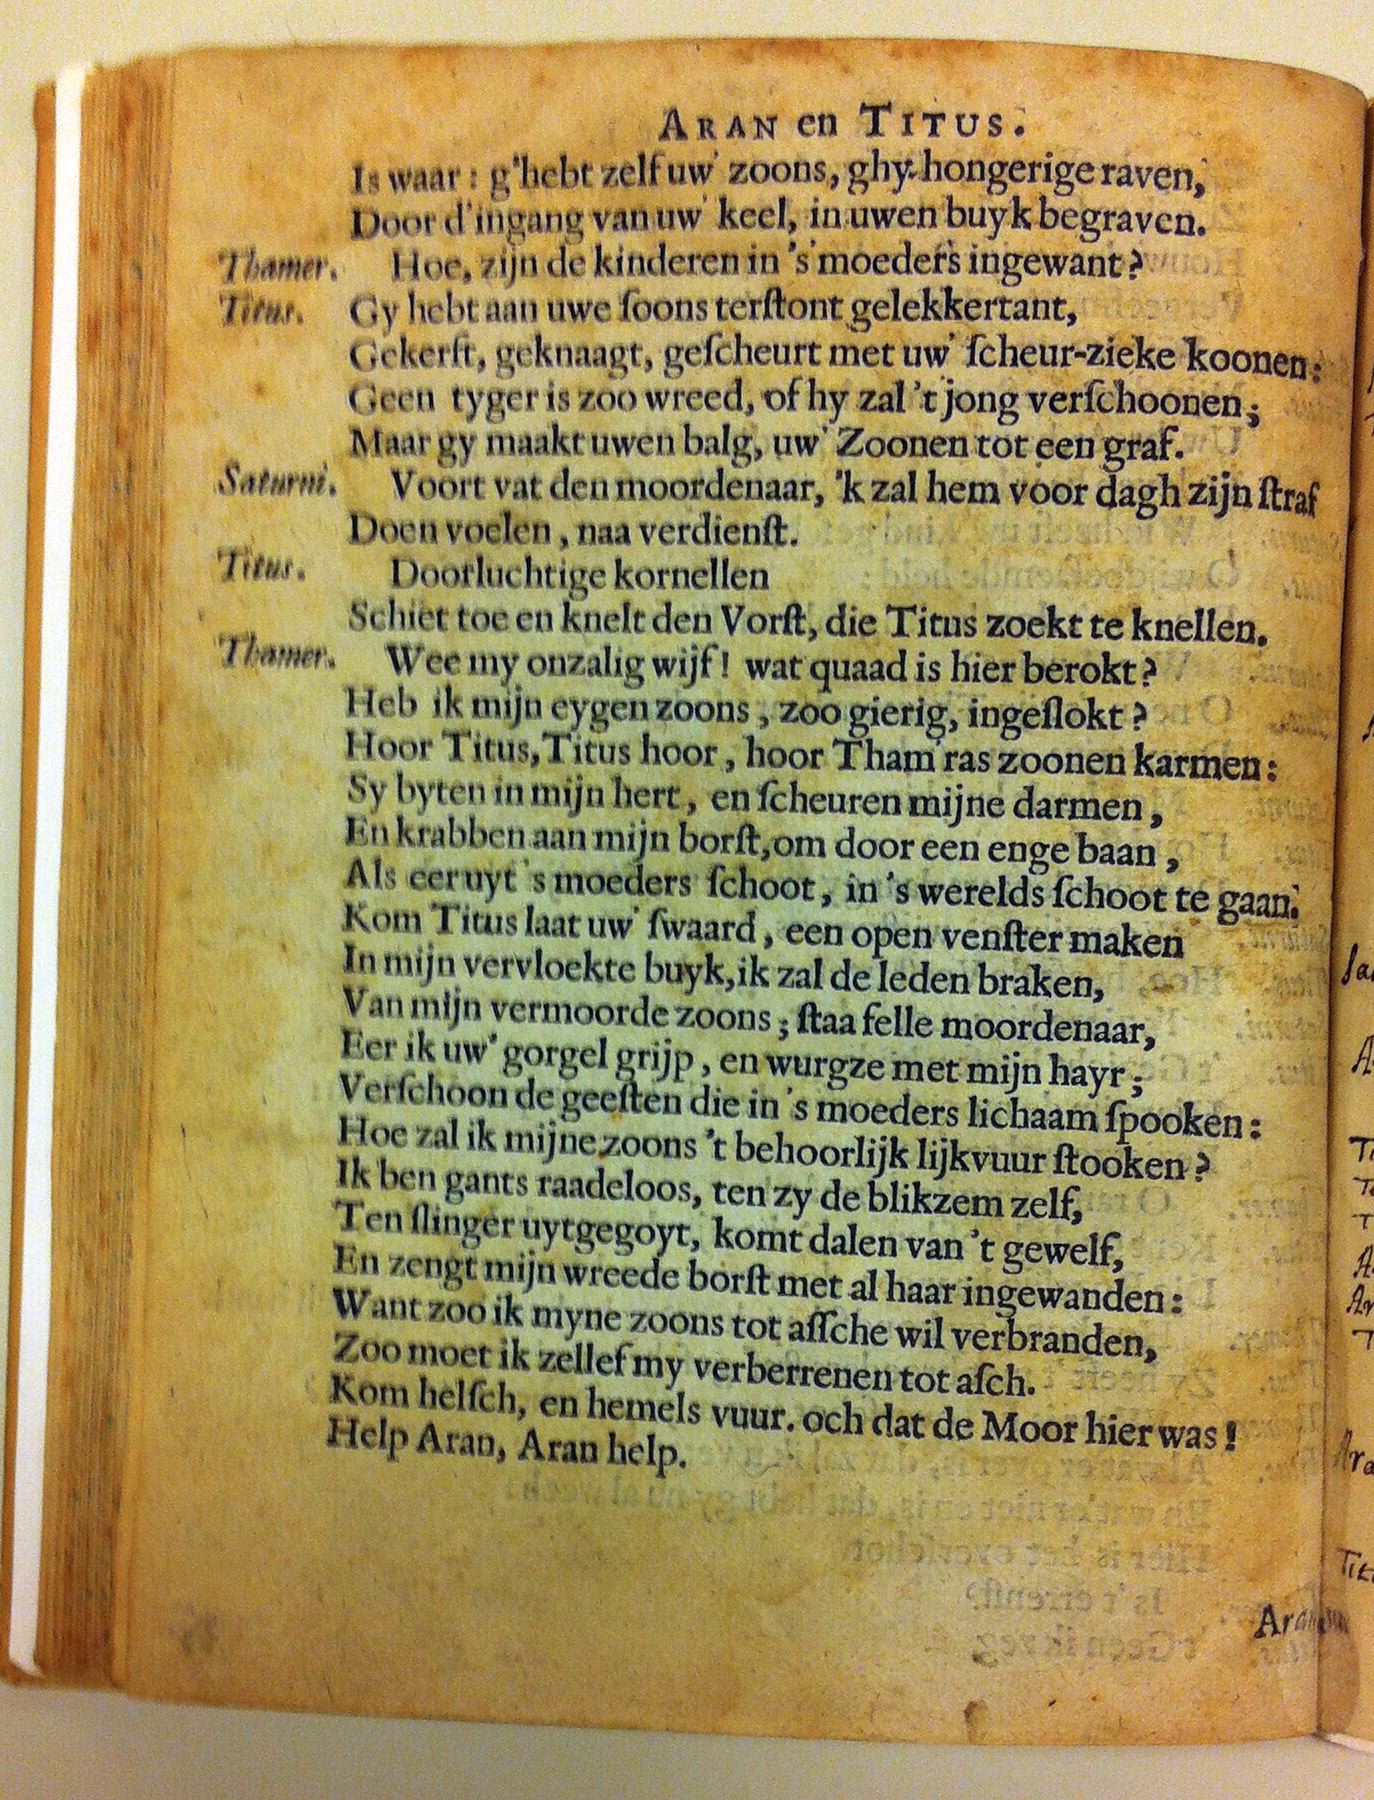 ARAN en TITUS.
Is waar: g'hebt zelf uw' zoons, ghy hongerige raven,
Door d'ingang van uw' keel, in uwen buyk begraven.
Thamer. Hoe, zijn de kinderen in 's moeders ingewant?
Titus. Gy hebt aan uwe ſoons terſtont gelekkertant,
Gekerft, geknaagt, geſcheurt met uw' ſcheur-zieke koonen:
Geen tyger is zoo wreed, of hy zal 't jong verſchoonen;
Maar gy maakt uwen balg, uw' Zoonen tot een graf.
Saturni. Voort vat den moordenaar, 'k zal hem voor dagh zijn ſtraf
Doen voelen, naa verdienſt.
Titus. Doorluchtige kornellen
Schiet toe en knelt den Vorſt, die Titus zoekt te knellen.
Thamer. Wee my onzalig wijf! wat quaad is hier berokt?
Heb ik mijn eygen zoons, zoo gierig, ingeſlokt?
Hoor Titus, Titus hoor, hoor Tham'ras zoonen karmen:
Sy byten in mijn hert, en ſcheuren mijne darmen,
En krabben aan mijn borſt, om door een enge baan,
Als eer uyt 's moeders ſchoot, in 's werelds ſchoot te gaan.
Kom Titus laat uw' ſwaard, een open venſter maken
In mijn vervloekte buyk, ik zal de leden braken,
Van mijn vermoorde zoons; ſtaa felle moordenaar,
Eer ik uw' gorgel grijp, en wurgze met mijn hayr;
Verſchoon de geeſten die in 's moeders lichaam ſpooken:
Hoe zal ik mijne zoons 't behoorlijk lijkvuur ſtooken?
Ik ben gants raadeloos, ten zy de blikzem zelf,
Ten ſlinger uytgegoyt, komt dalen van 't gewelf,
En zengt mijn wreede borſt met al haar ingewanden:
Want zoo ik myne zoons tot aſſche wil verbranden,
Zoo moet ik zellef my verberrenen tot aſch.
Kom helſch, en hemels vuur. och dat de Moor hier was!
Help Aran, Aran help.